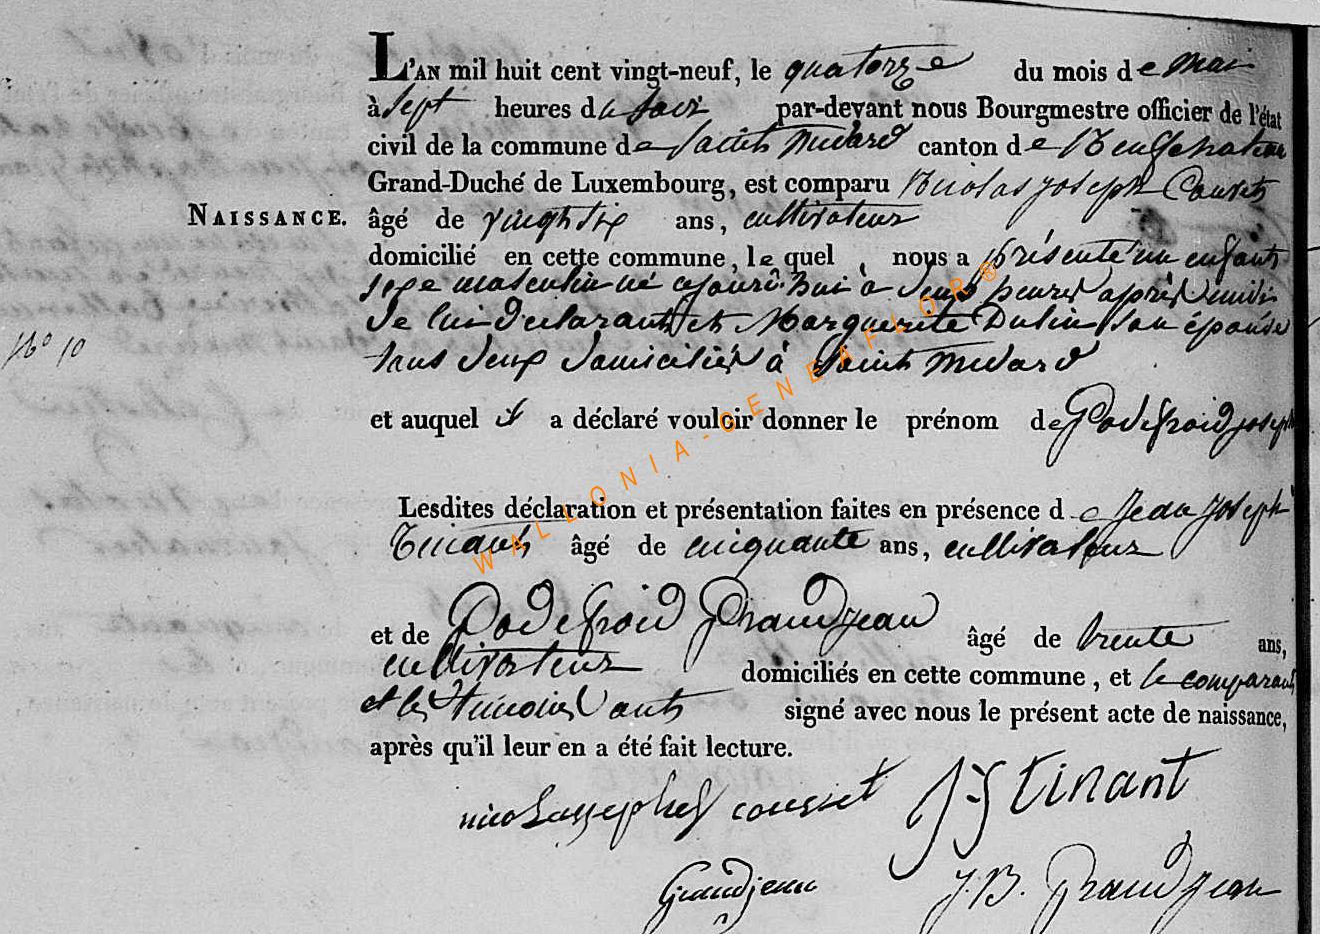 L'AN mil huit cent vingt-neuf, le quatorze du mois de mai
à sept heures du soir par-devant nous Bourgmestre officier de l'état
civil de la commune de Saint Médard canton de Neufchateau
Grand-Duché de Luxembourg, est comparu Nicolas joseph
NAISSANCE. âgé de vingt six ans, cultivateur
domicilié en cette commune, le quel nous a présenté un enfant
sexe masculin né ajourd'hui à heures après midi
de lui déclarant et Marguerite Dulin son épouse
No 10
tous deux domiciliés à Saint Médard
et auquel il a déclaré vouloir donner le prénom de Godefroid joseph
Lesdites déclaration et présentation faites en présence de Jean Joseph
Tinant âgé de cinquante ans, cultivateur
et de Godefroid Grandjean âgé de trente ans,
cultivateur domiciliés en cette commune, et le comparant
et les témoins ont signé avec nous le présent acte de naissance,
après qu'il leur en a été fait lecture.
cousset J J tinant
Grandjean J. B. Grandjean
WALLONIA-GENEAFLORE